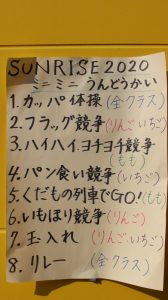 SUNRISE2020
ミニミニうんどうかい
1.カッパ体操(全クラス)
2.フラッグ競争(りんごいちご)
3.ハイハイ、ヨチヨチ競争
(もも)
4.パン食い競争(いちご)
5.くだもの列車でGO!(もも)
6.いもほり競争(りんご)
7.玉入れ(りんごいちご)
8.リレー(全クラス)